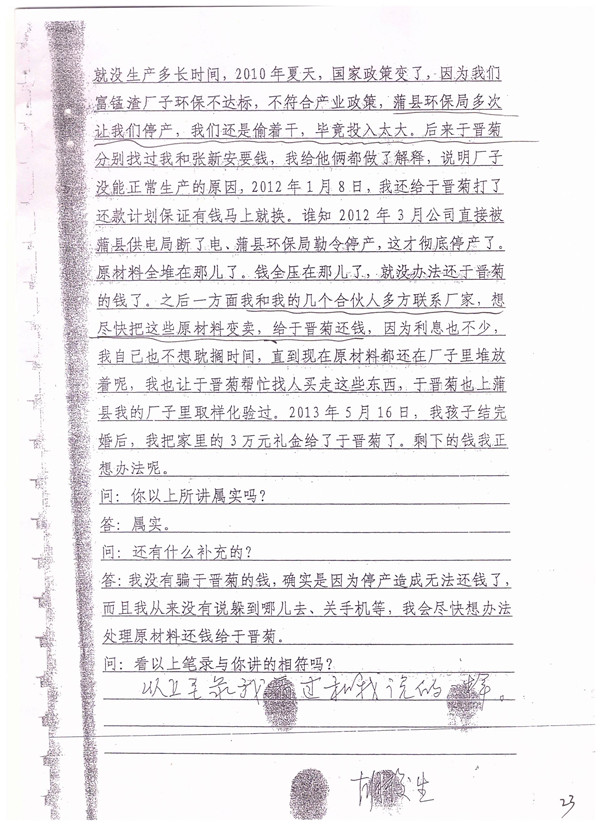 就没生产多长时间，2010年夏天，国家政策变了，因为我们
富锰渣厂子环保不达标，不符合产业政策，蒲县环保局多次
让我们停产，我们还是偷着干，毕竟投入太大。后来于晋菊
分别找过我和张新安要钱，我给他俩都做了解释，说明厂子
没能正常生产的原因，2012年1月8日，我还给于晋菊打了
还款计划保证有钱马上就换。谁知2012年3月公司直接被
蒲县供电局断了电、蒲县环保局勒令停产，这才彻底停产了。
原材料全堆在那儿了。钱全压在那儿了，就没办法还于晋菊
的钱了。之后一方面我和我的几个合伙人多方联系厂家，想
尽快把这些原材料变卖，给于晋菊还钱，因为利息也不少，
我自己也不想耽搁时间，直到现在原材料都还在厂子里堆放
着呢，我也让于晋菊帮忙找人买走这些东西，于晋菊也上蒲
县我的厂子里取样化验过。2013年5月16日，我孩子结完
婚后，我把家里的3万元礼金给了于晋菊了。剩下的钱我正
想办法呢。
问：你以上所讲属实吗？
答：属实。
问：还有什么补充的？
答：我没有骗于晋菊的钱，确实是因为停产造成无法还钱了，
而且我从来没有说躲到哪儿去、关手机等，我会尽快想办法
处理原材料还钱给于晋菊。
问：看以上笔录与你讲的相符吗？
以上笔录我看过和我说的一样。
胡 生
23